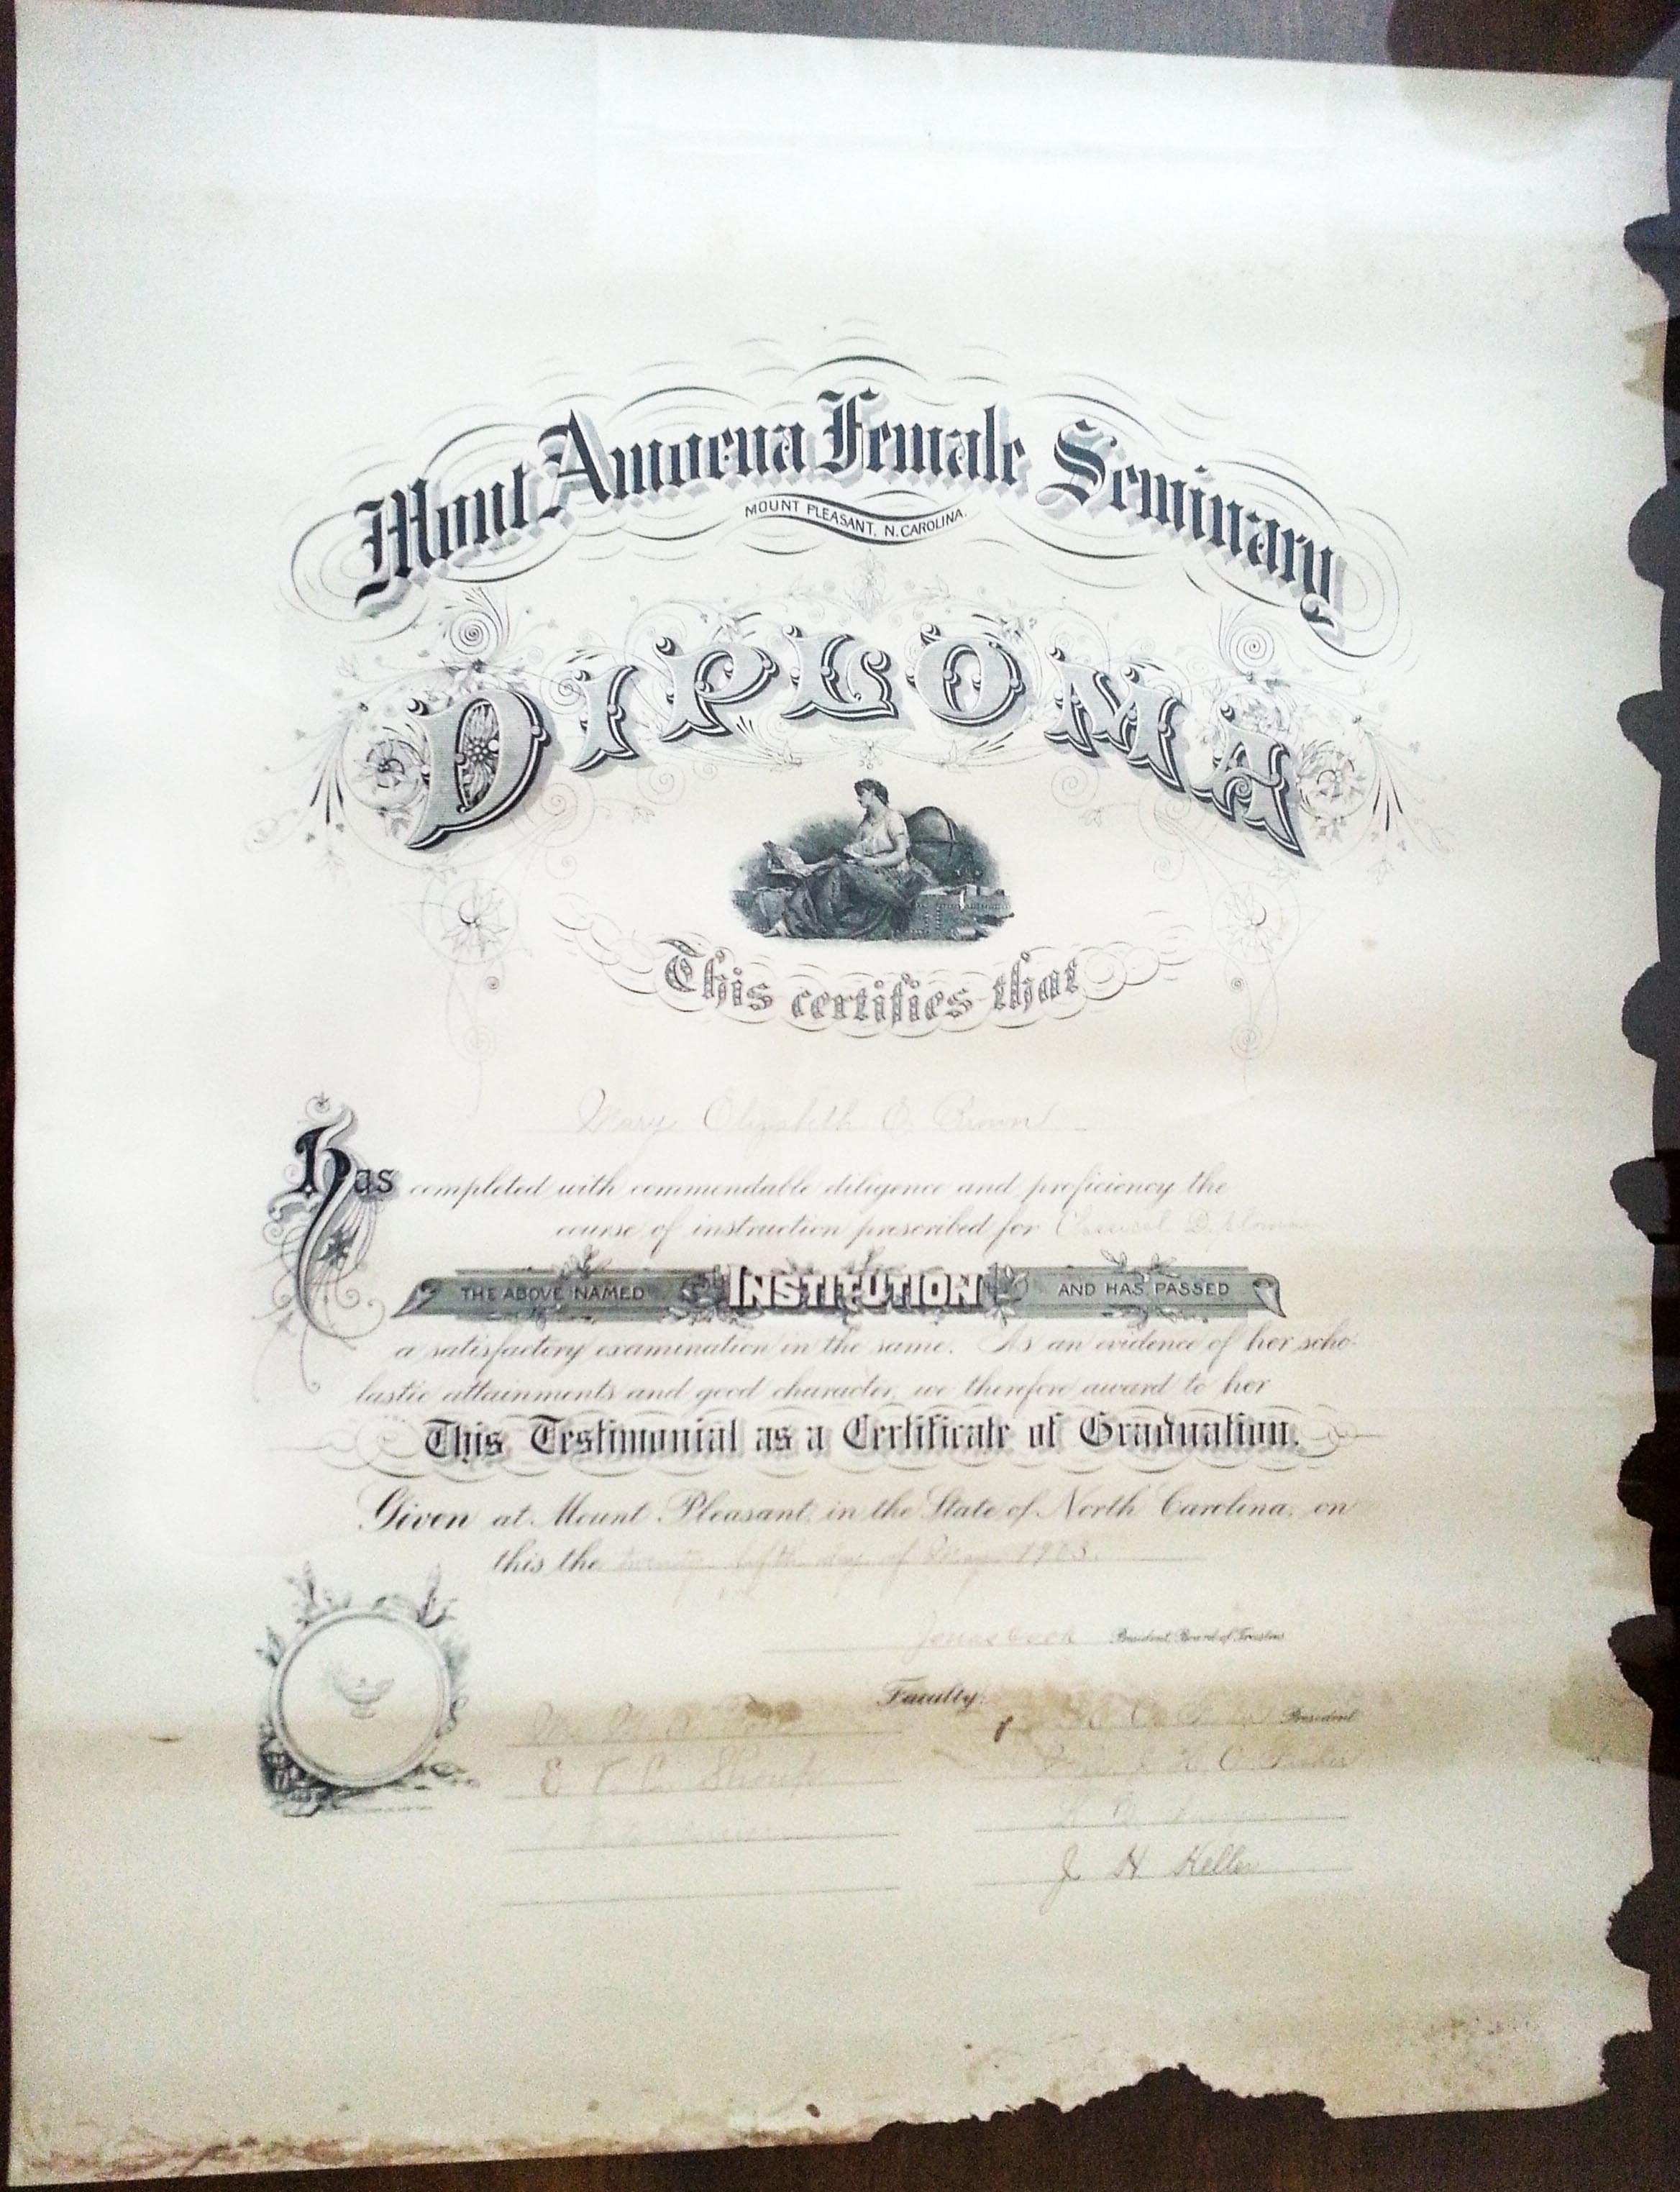 Mont Amoena Female Seminary
MOUNT PLEASANT, N. CAROLINA.
DIPLOMA
This certifies that
Mary Elizabeth E. Brown
Has completed with commendable diligence and proficiency the
course of instruction prescribed for Classical Diploma
THE ABOVE NAMED INSTITUTION AND HAS PASSED
a satisfactory examination in the same. As an evidence of her scho-
lastic attainments and good character, we therefore award to her
This Testimonial as a Certificate of Graduation.
Given at Mount Pleasant, in the State of North Carolina, on
this the twenty fifth day of May 1903.
Jonas Cook President Board of Trustees
Faculty:
President
J H Keller